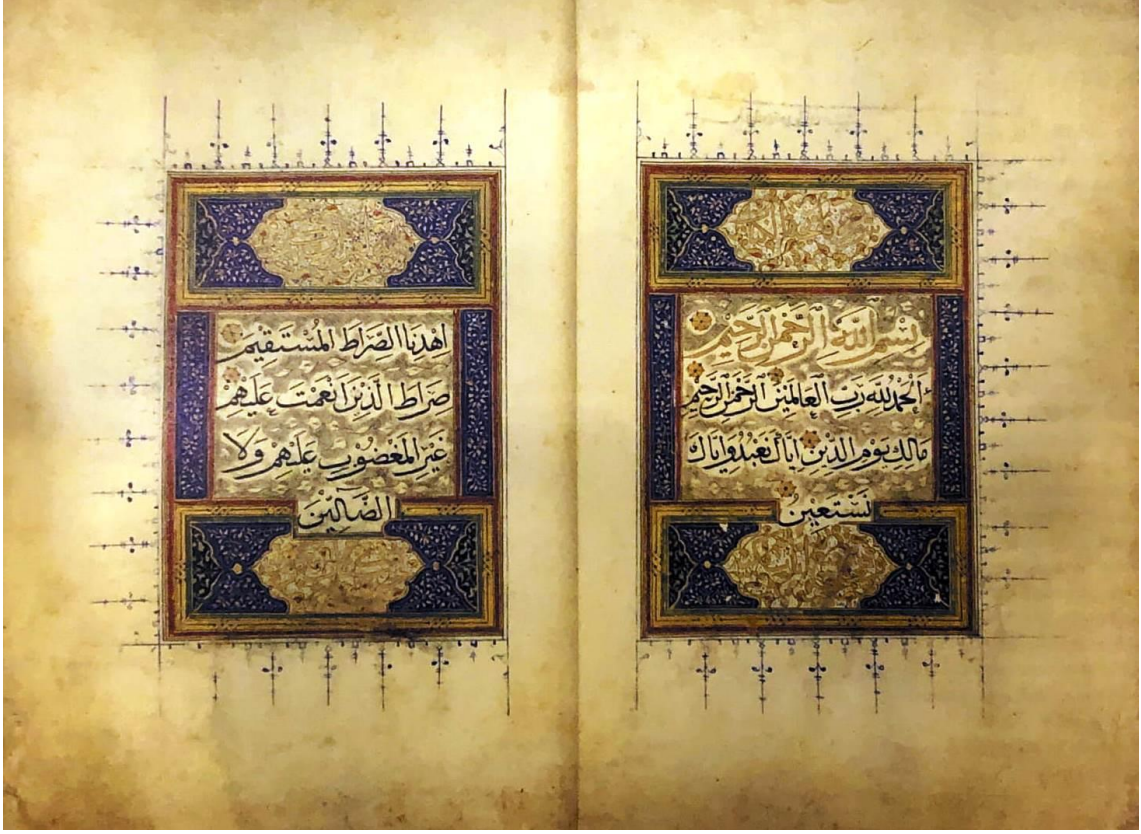 بِسْمِ اللَّهِ الرَّحْمَٰنِ الرَّحِيمِ
الْحَمْدُ لِلَّهِ رَبِّ الْعَالَمِينَ الرَّحْمَٰنِ الرَّحِيمِ
مَالِكِ يَوْمِ الدِّينِ إِيَّاكَ نَعْبُدُ وَإِيَّاكَ
نَسْتَعِينُ
اهْدِنَا الصِّرَاطَ الْمُسْتَقِيمَ
صِرَاطَ الَّذِينَ أَنْعَمْتَ عَلَيْهِمْ
غَيْرِ الْمَغْضُوبِ عَلَيْهِمْ وَلَا
الضَّالِّينَ